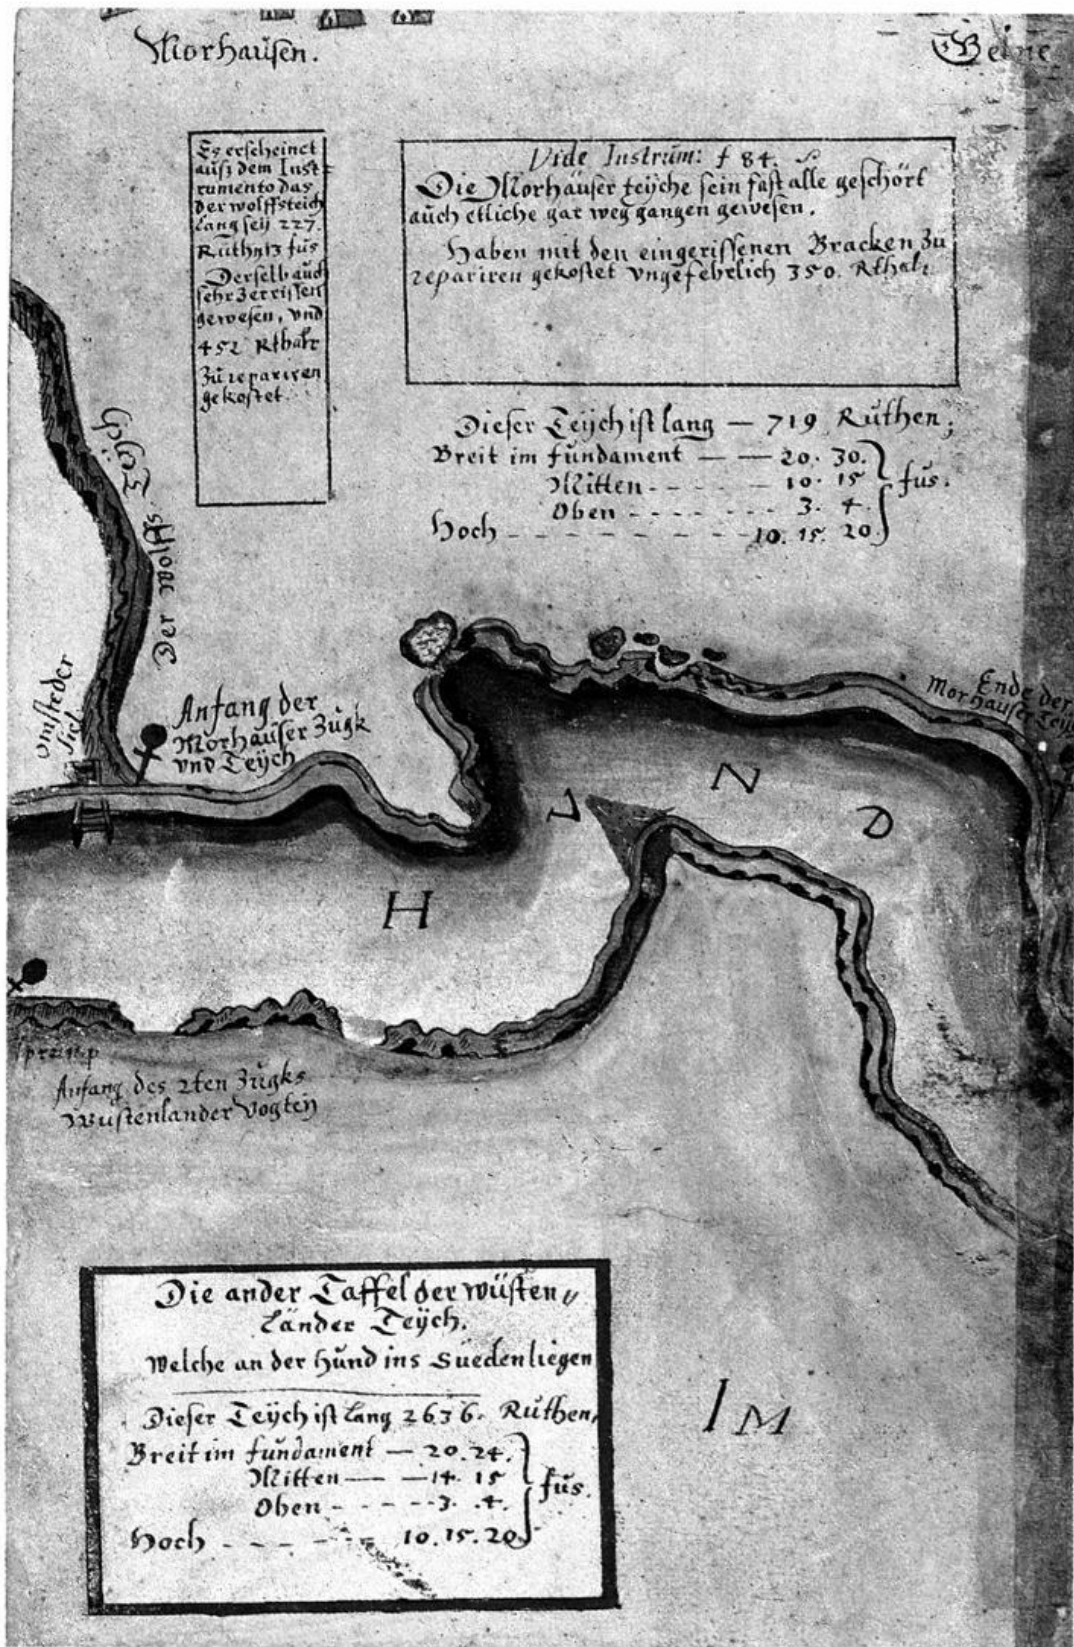 Morhausen.
Beine
Es erscheinet
auß dem Inst-
rumento das
der wolffsteich
Lang seÿ 227.
Ruthn 13 fus
Derselb auch
sehr Zerrissen
gewesen, vnd
452 Rthalr
Zu repariren
gekostet.
Vide Instrum: f 84.
Die Morhauser teÿche sein fast alle geschört
auch etliche gar weg gangen gewesen.
Haben mit den eingerissenen Bracken Zu
repariren gekostet vngefehrlich 350. Rthalr
Dieser Teÿch ist lang — 719 Ruthen;
Breit im fundament — — 20. 30.
Mitten - - - - - 10. 15
Oben - - - - - - - 3. 4.
fus.
Hoch - - - - - - - - - 10. 15. 20.
Der Wolffs Teÿch
omsteder
Siel
Anfang der
Morhauser Zugk
vnd Teÿch
Ende der
Morhauser Teÿch
H V N D
Anfang des 2ten Zugks
Wustenlander Vogteÿ
Die ander Taffel der wüsten〃
Länder Teÿch.
Welche an der Hund ins Sueden liegen
Dieser Teÿch ist Lang 2636. Ruthen,
Breit im fundament — 20. 24.
Mitten — — 14. 15
Oben - - - - - 3. 4.
fus.
Hoch - - - - - 10. 15. 20
IM